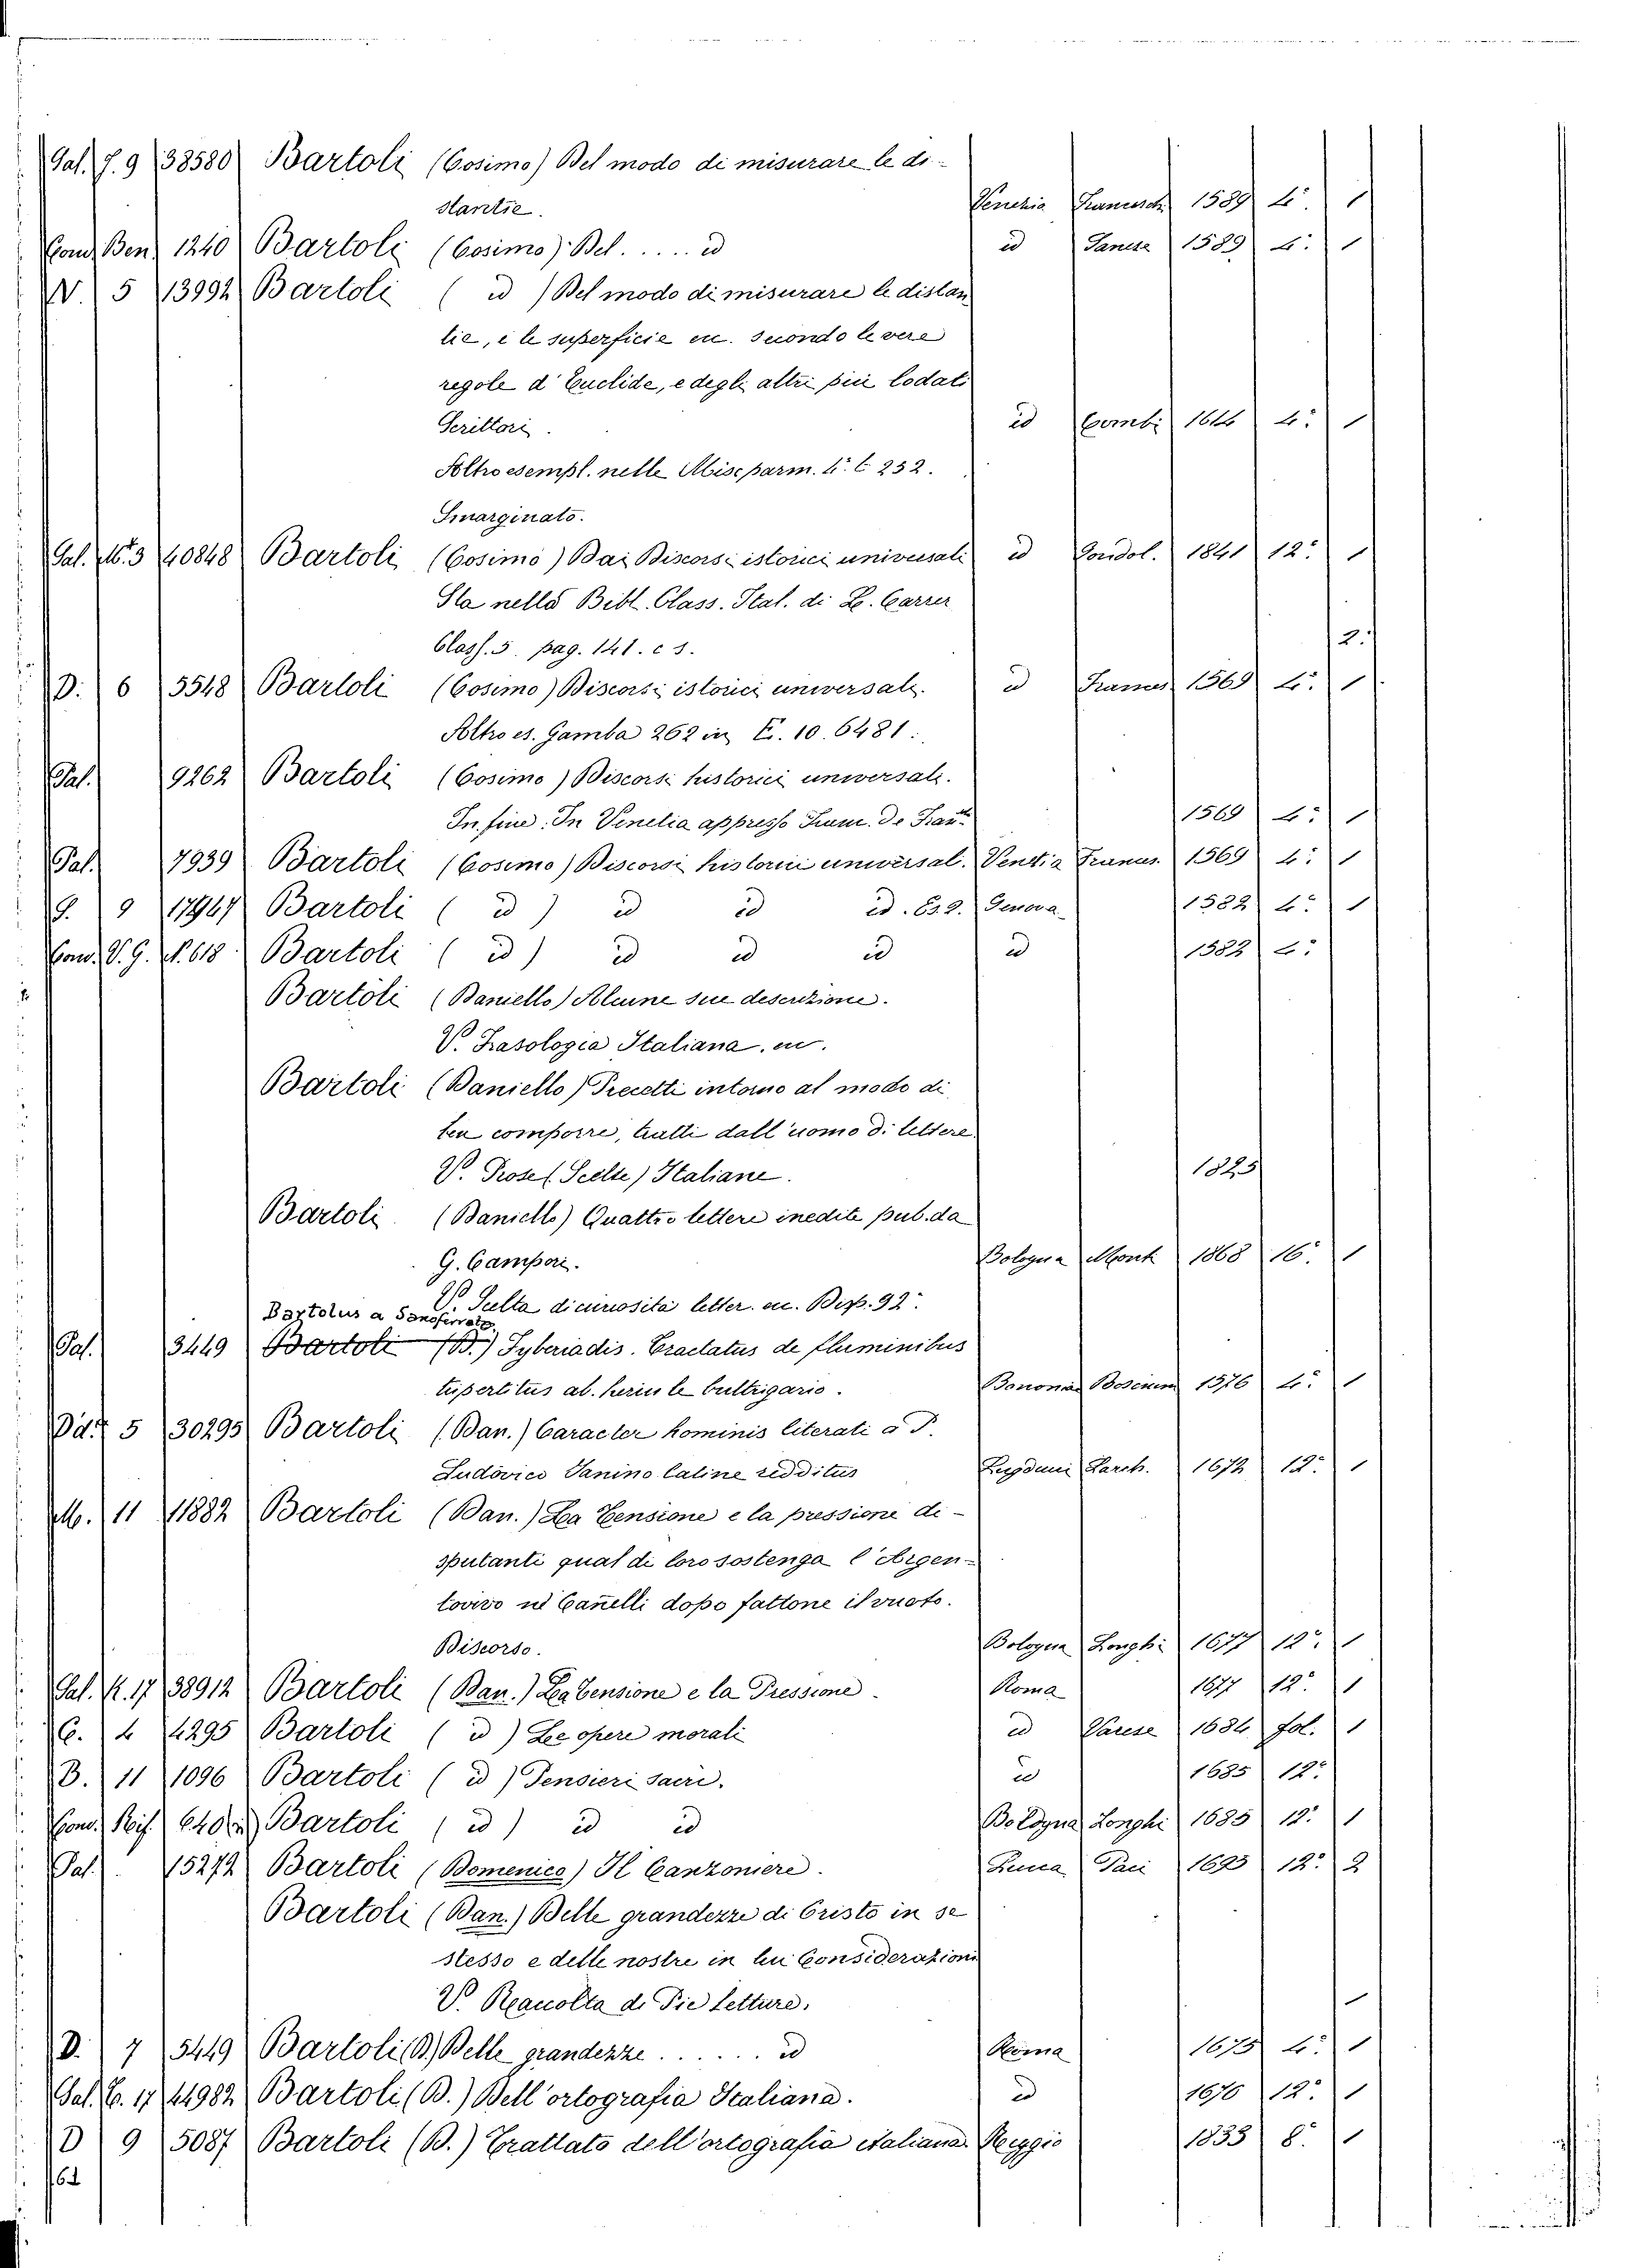 Gal. f. 9 38580 Bartoli (Cosimo) Del modo di misurare le di-
stantie. Venezia Francesch 1589 4° 1
Cons. Ben 1240 Bartoli (Cosimo) Del ..... id id 1589 4° 1
V. 5 13992 Bartoli ( id ) Del modo di misurare le distan
tie, e le superficie ec. secondo le vere
regole d'Euclide, e degli altri più lodati
Scrittori. id Combi 1614 4° 1
Altro esempl. nelle Misc parm. 4° t 232.
Smarginato.
Gal. M. 3 40848 Bartoli (Cosimo) Dai Discorsi istorici universali id Gondol. 1841 12° 1
Sta nella Bibl. Class. Ital. di L. Carrer
Class. 5. pag. 141. c 1. 2.
D. 6 5548 Bartoli (Cosimo) Discorsi istorici universali. id Frances 1569 4° 1
Altro es. Gamba 262 in E. 10. 6481.
Pal. 9262 Bartoli (Cosimo) Discorsi historici universali.
In fine: In Venetia appresso Fram. de Fran. 1569 4° 1
Pal. 7939 Bartoli (Cosimo) Discorsi historici universal. Ventia Frances 1569 4° 1
G. 9 17947 Bartoli ( id ) id id id. Ed. 2. Genova 1582 4° 1
Conv. V. G. N. 618 Bartoli ( id ) id id id id 1582 4°
Bartoli (Daniello) Alcune sue descrizione.
V. Frasologia Italiana. ec.
Bartoli (Daniello) Precetti intorno al modo di
ben comporre, tratti dall'uomo di lettere
V. Prose (Scelte) Italiane. 1825
Bartoli (Daniello) Quattro lettere inedite pub. da
G. Campori. Bologna Monti 1868 16° 1
V. Scelta di curiosità letter. ec. Disp. 92°.
Bartolus a Sanoferrato
Pal. 3449 Bartoli (B.) Tyberiadis. Tractatus de fluminibus
tupertitus ab. hercule buttrigario. Bononiae 1576 4° 1
5 30295 Bartoli (Dan.) Caracter hominis literati a P.
Ludovico Janino latine redditus Lugduni Larch. 1672 12° 1
M. 11 11882 Bartoli (Dan.) La Tensione e la pressione di-
sputanti qual di loro sostenga l'Argen-
tovivo ne Canelli dopo fattone il vuoto.
Discorso. Bologna Longhi 1677 12° 1
Gal. R. 17 38912 Bartoli (Dan.) La tensione e la Pressione. Roma 1677 12° 1
C. 4 4295 Bartoli ( id ) Le opere morali id Varese 1684 fol. 1
B. 11 1096 Bartoli ( id ) Pensieri sacri. id 1685 12°
Cons. Rif. 640 Bartoli ( id ) id id Bologna Longhi 1685 12° 1
Pal. 15272 Bartoli (Domenico) Il Canzoniere. Lucca Paci 1695 12° 2
Bartoli (Dan.) Delle grandezze di Cristo in se
stesso e delle nostre in lui Considerazioni
V. Raccolta di Pie letture.
D. 7 5449 Bartoli (D.) Delle grandezze ...... id Roma 1675 4° 1
Gal. C. 17 44982 Bartoli (D.) Dell'ortografia Italiana. id 1670 12° 1
D 9 5087 Bartoli (D.) Trattato dell'ortografia italiana Reggio 1833 8° 1